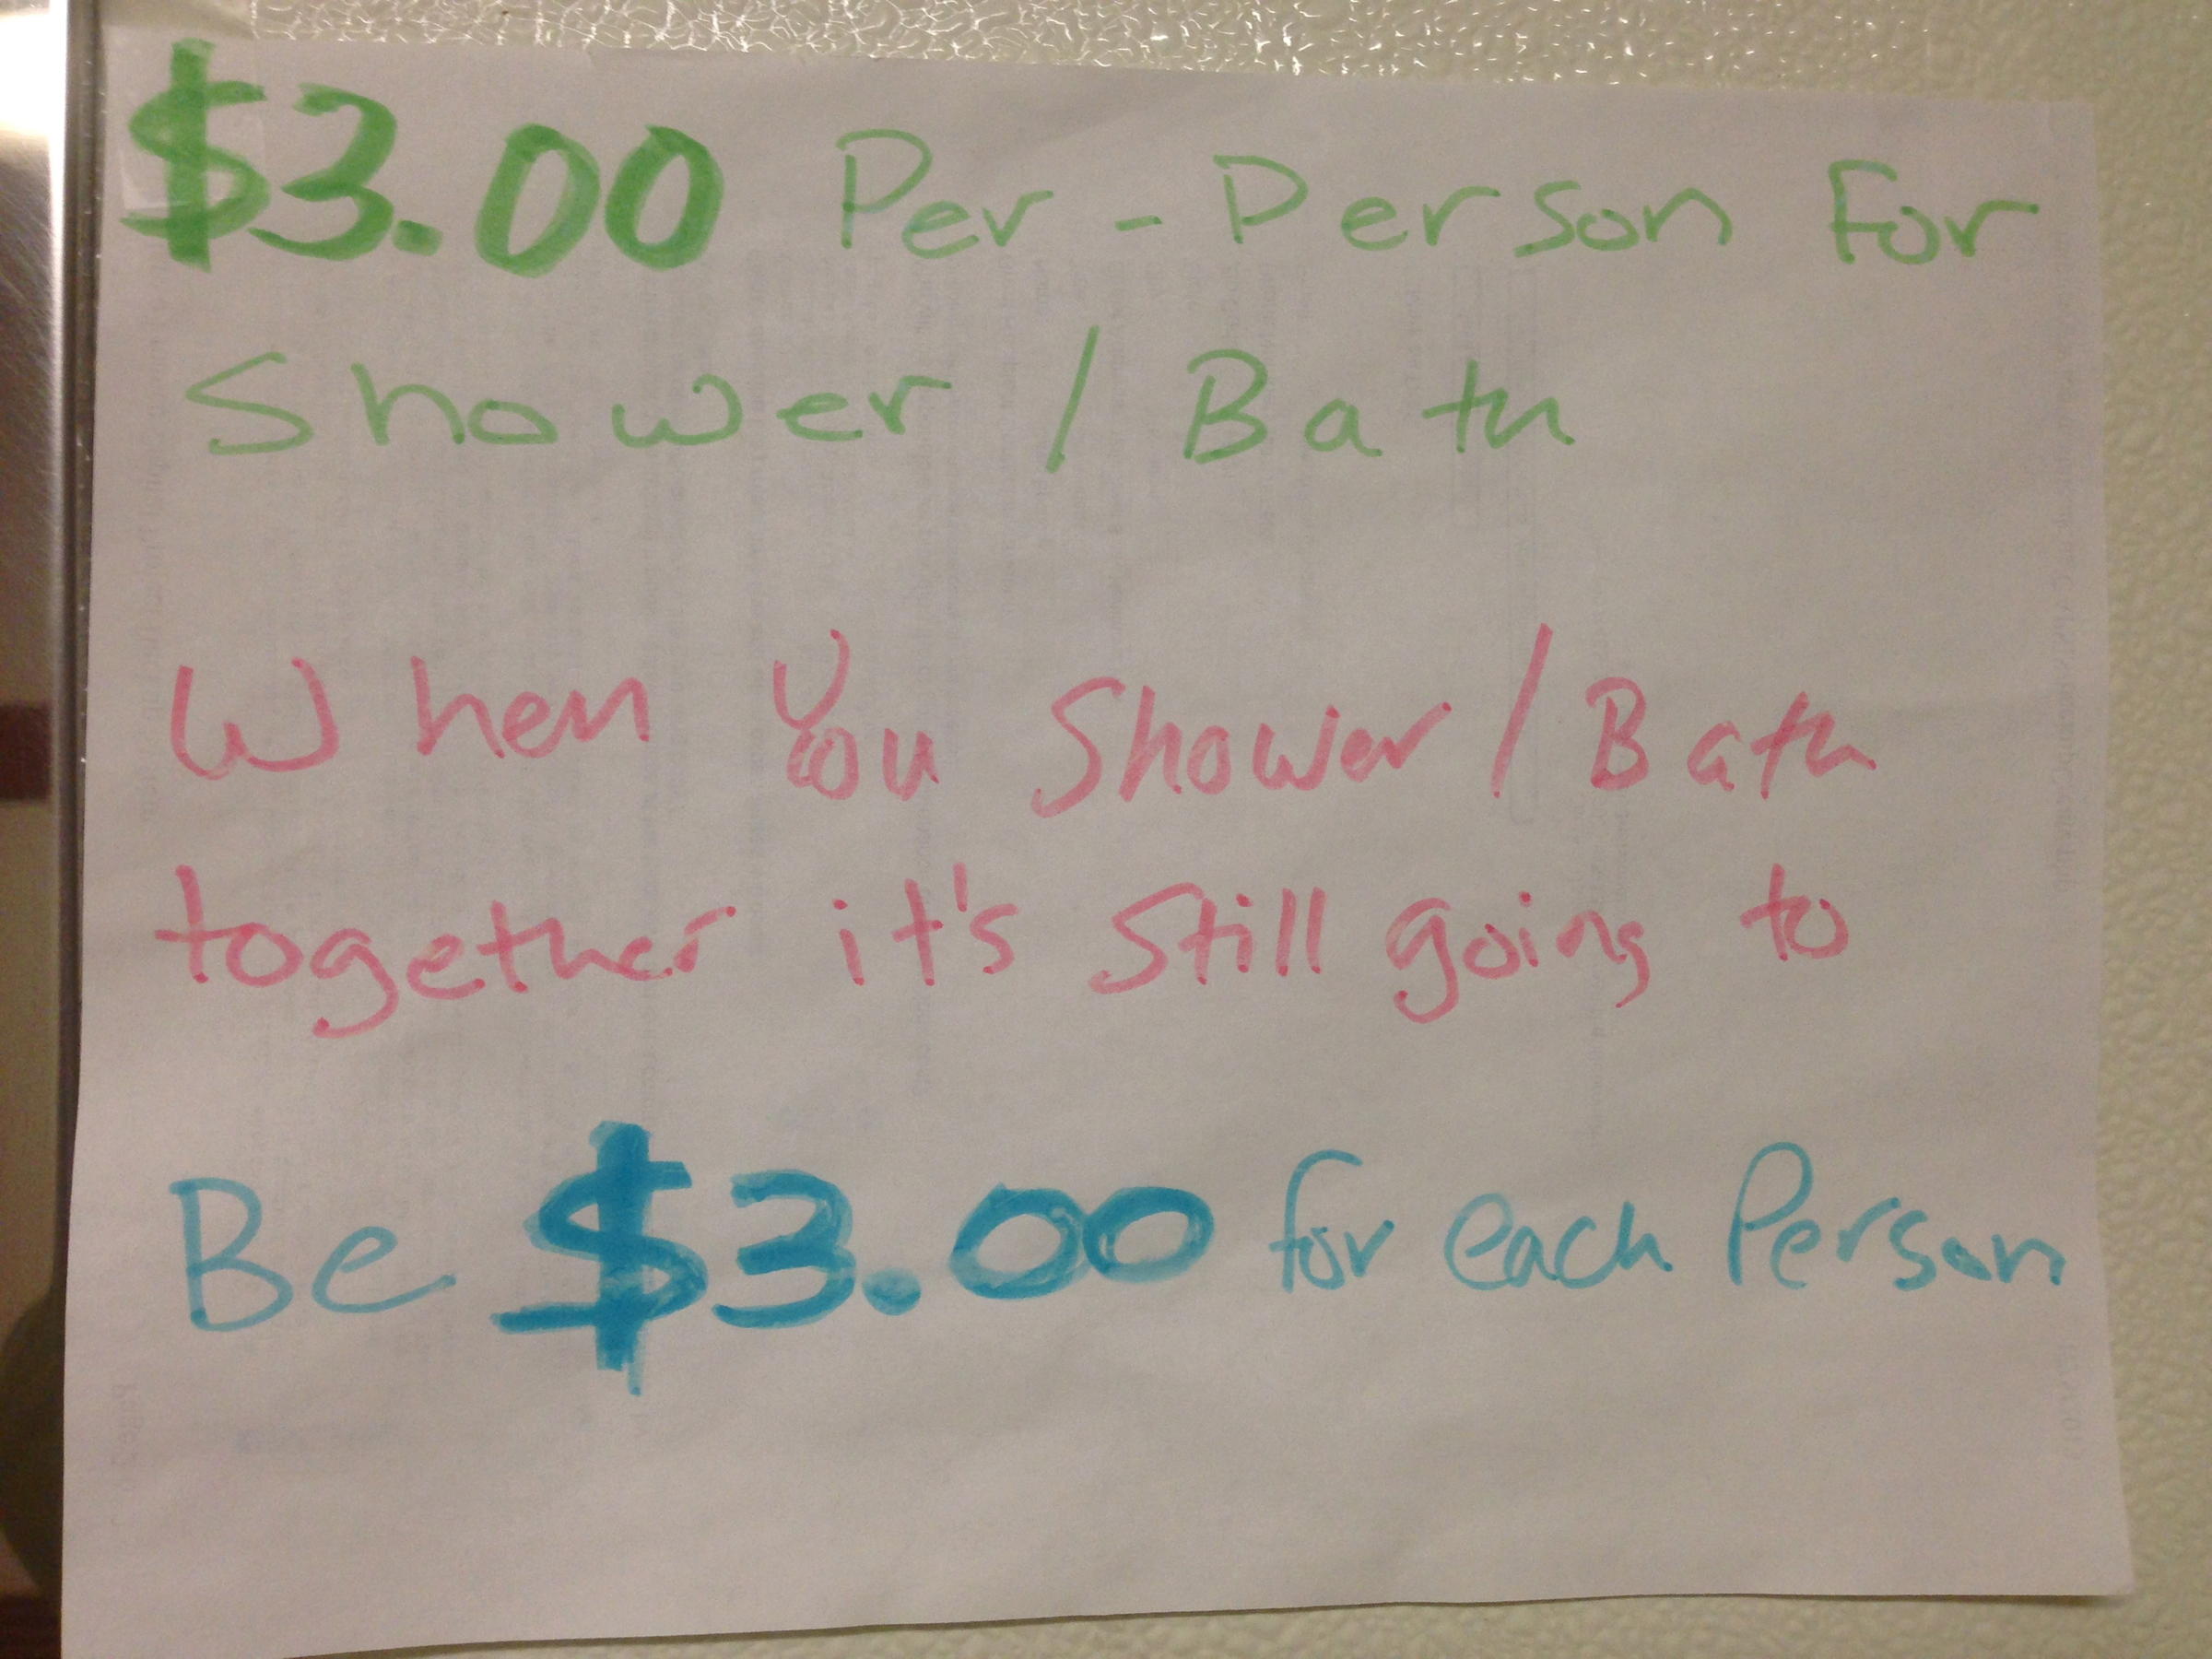 $3.00 Per-Person For
Shower / Bath
When You Shower / Bath
together it's Still going to
Be $3.00 for each Person